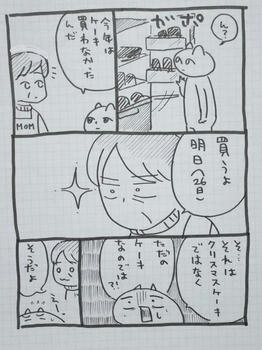 ん？
ガポ
今年は
ケーキ
買わなかった
んだ
MOM
買うよ
明日(26日)
それは
クリスマスケーキ
ではなく
ただの
ケーキ
なのでは？！
そうだよ